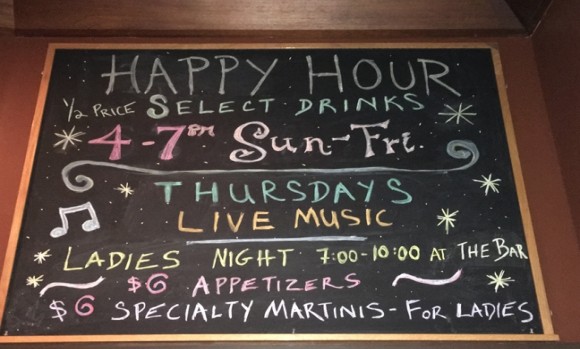 HAPPY HOUR
1/2 PRICE SELECT DRINKS
4-7PM Sun-Fri.
THURSDAYS
LIVE MUSIC
LADIES NIGHT 7:00-10:00 AT THE BAR
$6 APPETIZERS
$6 SPECIALTY MARTINIS - FOR LADIES